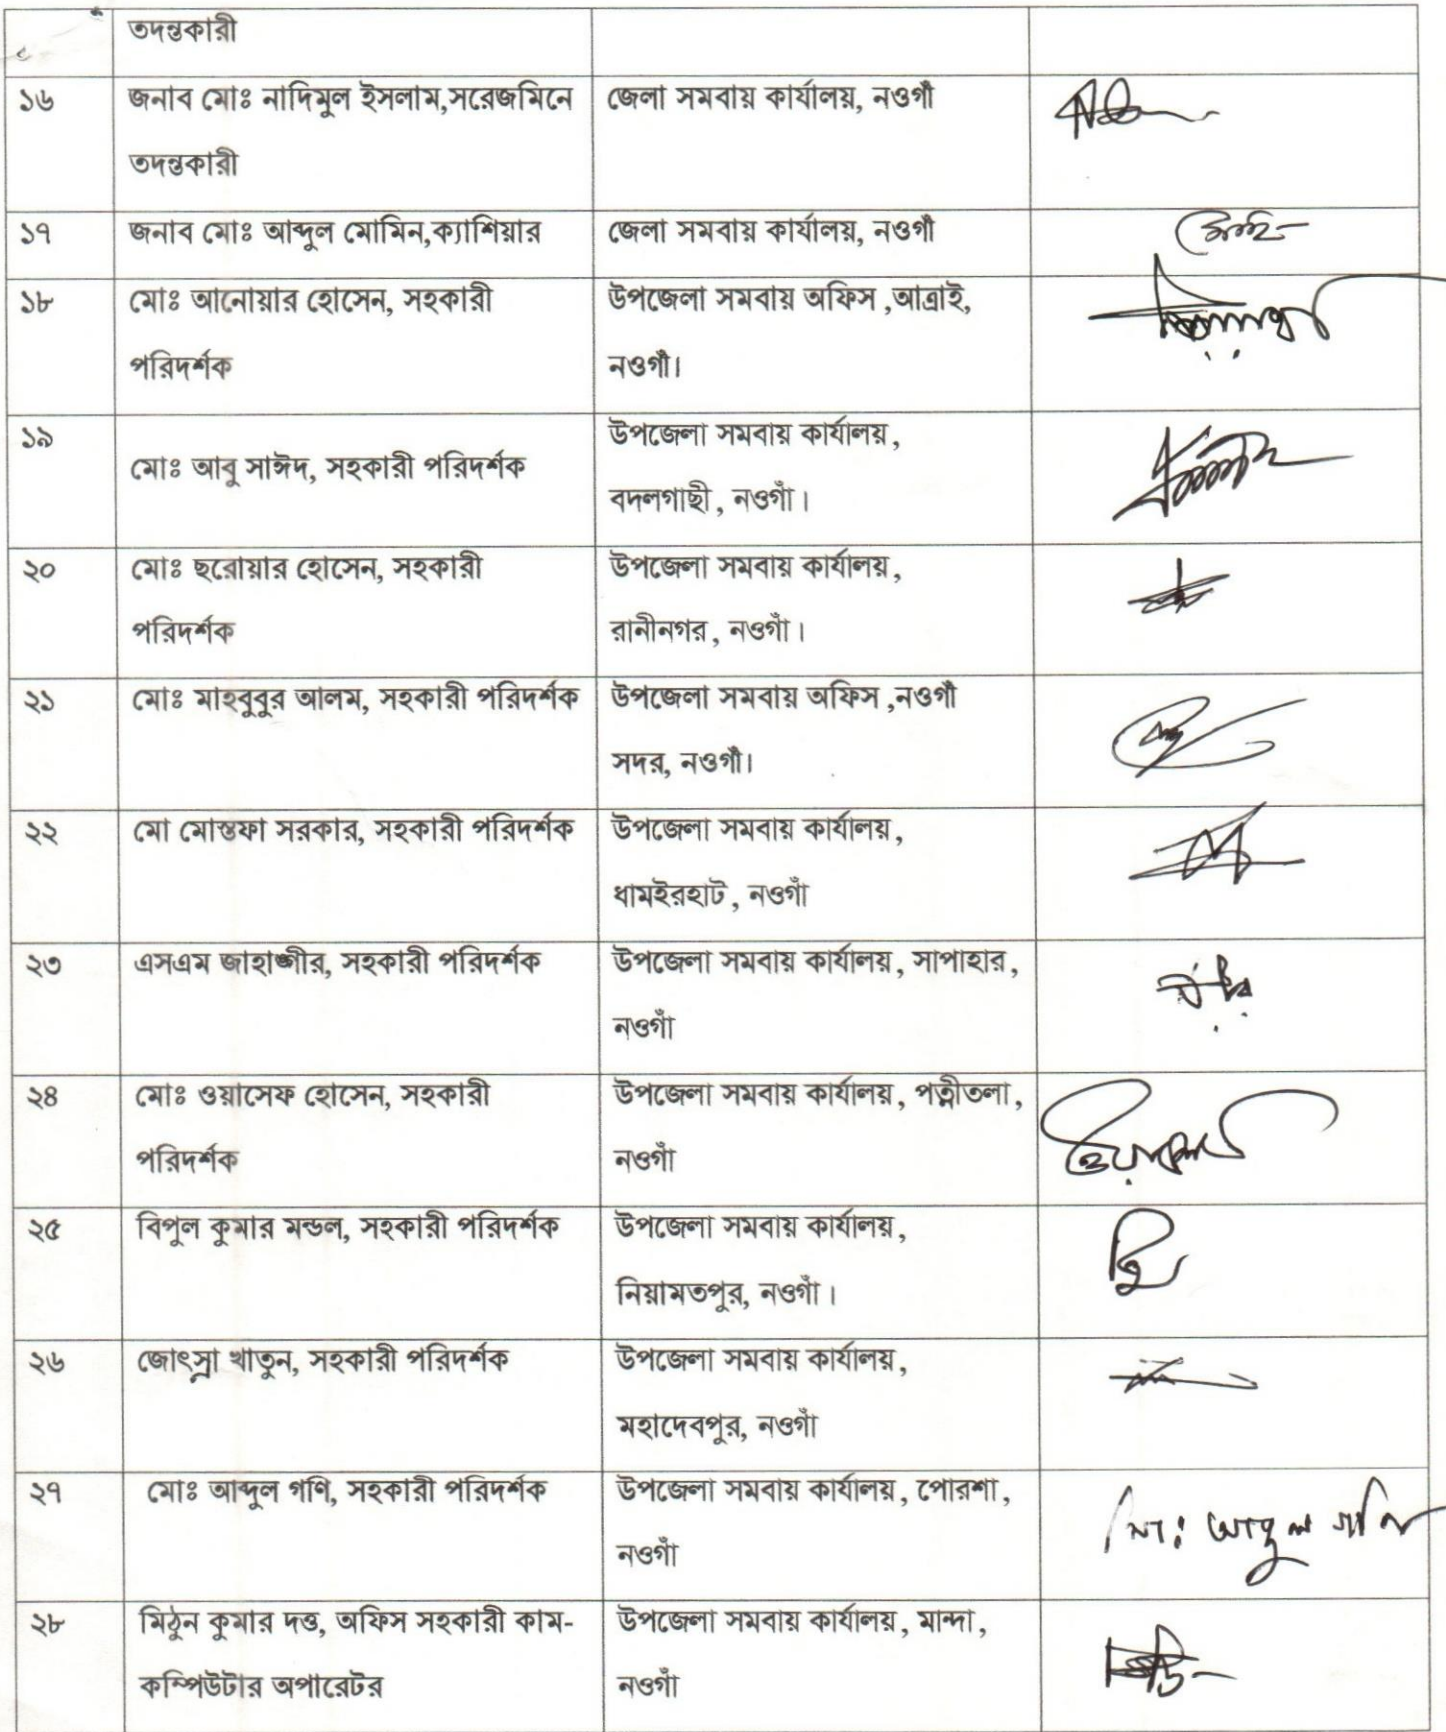 তদন্তকারী
১৬ জনাব মোঃ নাদিমুল ইসলাম,সরেজমিনে জেলা সমবায় কার্যালয়, নওগাঁ
তদন্তকারী
১৭ জনাব মোঃ আব্দুল মোমিন,ক্যাশিয়ার জেলা সমবায় কার্যালয়, নওগাঁ
১৮ মোঃ আনোয়ার হোসেন, সহকারী উপজেলা সমবায় অফিস ,আত্রাই,
পরিদর্শক নওগাঁ।
১৯ উপজেলা সমবায় কার্যালয়,
মোঃ আবু সাঈদ, সহকারী পরিদর্শক
বদলগাছী, নওগাঁ।
২০ মোঃ ছরোয়ার হোসেন, সহকারী উপজেলা সমবায় কার্যালয়,
পরিদর্শক রানীনগর, নওগাঁ।
২১ মোঃ মাহবুবুর আলম, সহকারী পরিদর্শক উপজেলা সমবায় অফিস ,নওগাঁ
সদর, নওগাঁ।
২২ মো মোস্তফা সরকার, সহকারী পরিদর্শক উপজেলা সমবায় কার্যালয়,
ধামইরহাট, নওগাঁ
২৩ এসএম জাহাঙ্গীর, সহকারী পরিদর্শক উপজেলা সমবায় কার্যালয়, সাপাহার,
নওগাঁ
২৪ মোঃ ওয়াসেফ হোসেন, সহকারী উপজেলা সমবায় কার্যালয়, পত্নীতলা,
পরিদর্শক নওগাঁ
২৫ বিপুল কুমার মন্ডল, সহকারী পরিদর্শক উপজেলা সমবায় কার্যালয়,
নিয়ামতপুর, নওগাঁ।
২৬ জোৎস্না খাতুন, সহকারী পরিদর্শক উপজেলা সমবায় কার্যালয়,
মহাদেবপুর, নওগাঁ
২৭ মোঃ আব্দুল গণি, সহকারী পরিদর্শক উপজেলা সমবায় কার্যালয়, পোরশা, মোঃ আব্দুল গনি
নওগাঁ
২৮ মিঠুন কুমার দত্ত, অফিস সহকারী কাম- উপজেলা সমবায় কার্যালয়, মান্দা,
কম্পিউটার অপারেটর নওগাঁ